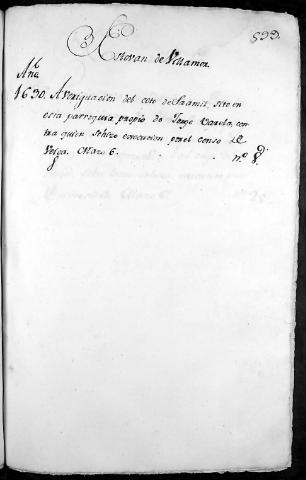 533.
Estevan de Villamor.
Año
1630. Averiguacion del coto de Saamil, sito en
esta parroquia propio de Jorge Varela, con
tra quien se hizo execucion por el censo de
Veiga. Mazo 6. nº 8.